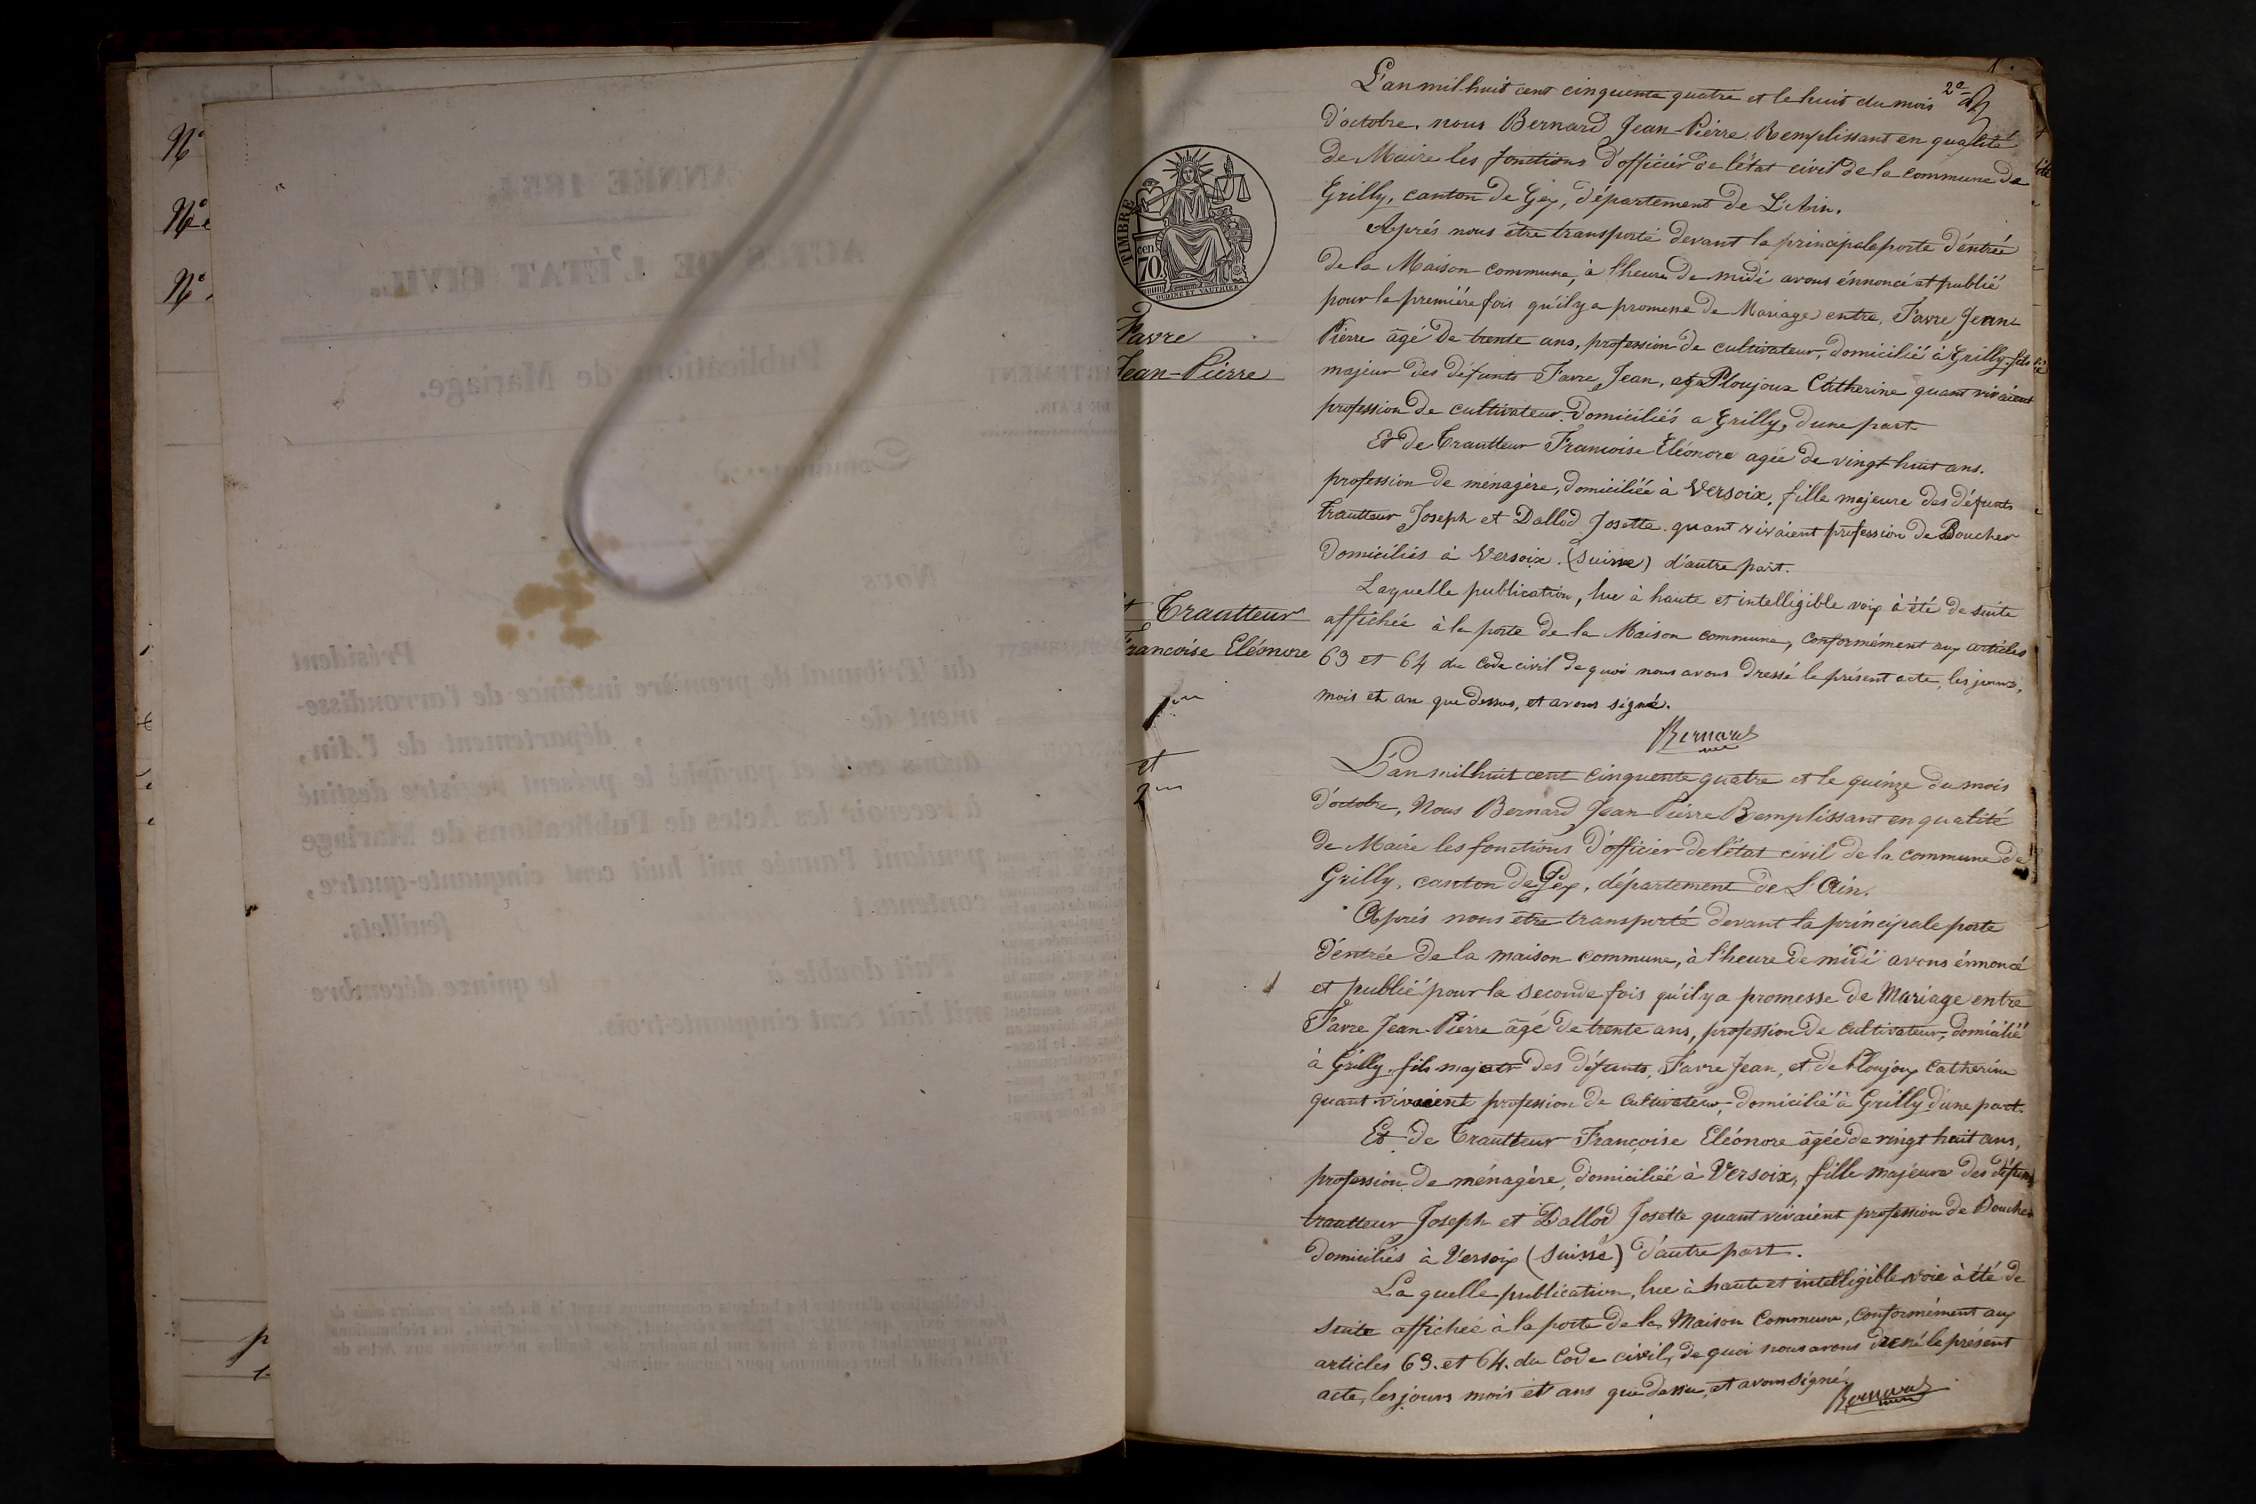 Nº
Nº
Nº
1.
2e
TIMBRE
cen
70
OUDINÉ ET GAUTHIER
Favre
Jean-Pierre
et Trautteur
Françoise Eléonore
1ere
et
2eme
L'an mil-huit cent cinquante quatre et le huit du mois
d'octobre, nous Bernard Jean-Pierre Remplissant en qualité
de Maire les fonctions d'officier de l'état civil de la commune de
Grilly, canton de Gex, département de L'Ain.
Après nous être transporté devant la principale porte d'éntrée
de la Maison commune, à l'heure de midi avons énnoncé et publié
pour la première fois qu'il y a promesse de Mariage entre, Favre Jean
Pierre âgé de trente ans, profession de cultivateur, domicilié à Grilly, fils
majeur des défunts Favre Jean, et Ploujoux Cathérine quant vivaient
profession de cultivateur domiciliés a Grilly, d'une part
Et de Trautteur Françoise Eléonore agée de vingt huit ans.
profession de ménagère, domiciliée à Versoix, fille majeure des défunts
trautteur Joseph et Dallod Josette quant vivaient profession de Boucher
domiciliés à Versoix (Suisse) d'autre part.
Laquelle publication, lue à haute et intelligible voix à été de suite
affichée à la porte de la Maison commune, conformément aux articles
63 et 64 du Code civil de quoi nous avons dressé le présent acte, les jours,
mois et an que dessus, et avons signé.
Bernard
L'an mil huit cent cinquante quatre et le quinze du mois
d'octobre, Nous Bernard Jean-Pierre Remplissant en qualité
de Maire les fonctions d'officier de l'état civil de la commune de
Grilly, canton de Gex, département de L'Ain.
Après nous être transporté devant la principale porte
d'éntrée de la maison commune, à l'heure de midi avons énnoncé
et publié pour la seconde fois qu'il y a promesse de Mariage entre
Favre Jean-Pierre âgé de trente ans, profession de cultivateur, domicilié
à Grilly, fils majeur des défunts, Favre Jean, et de Ploujoux Catherine
quant vivaient profession de Cultivateur, domicilié à Grilly d'une part.
Et de Trautteur Françoise Eléonore âgée de vingt huit ans,
profession de ménagère, domiciliée à Versoix, fille majeure des défunts
trautteur Joseph et Dallod Josette quant vivaient profession de Boucher
domiciliés à Versoix (Suisse) d'autre part.
La quelle publication, lue à haute et intelligible voie à été de
Suite affichée à la porte de la Maison Commune, Conformément aux
articles 63. et 64. du Code civil, de quoi nous avons dressé le présent
acte, les jours mois et ans que dessus, et avons signé.
Bernard